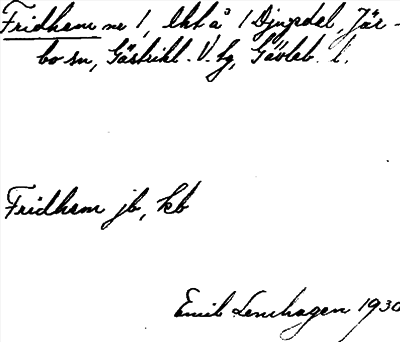 Fridhem nr 1, lht å 1 Djupdal, Jär-
bo sn, Gästrikl. V. tg, Gävleb. l.
Fridhem jb, kb
Emil Lenhagen 1930